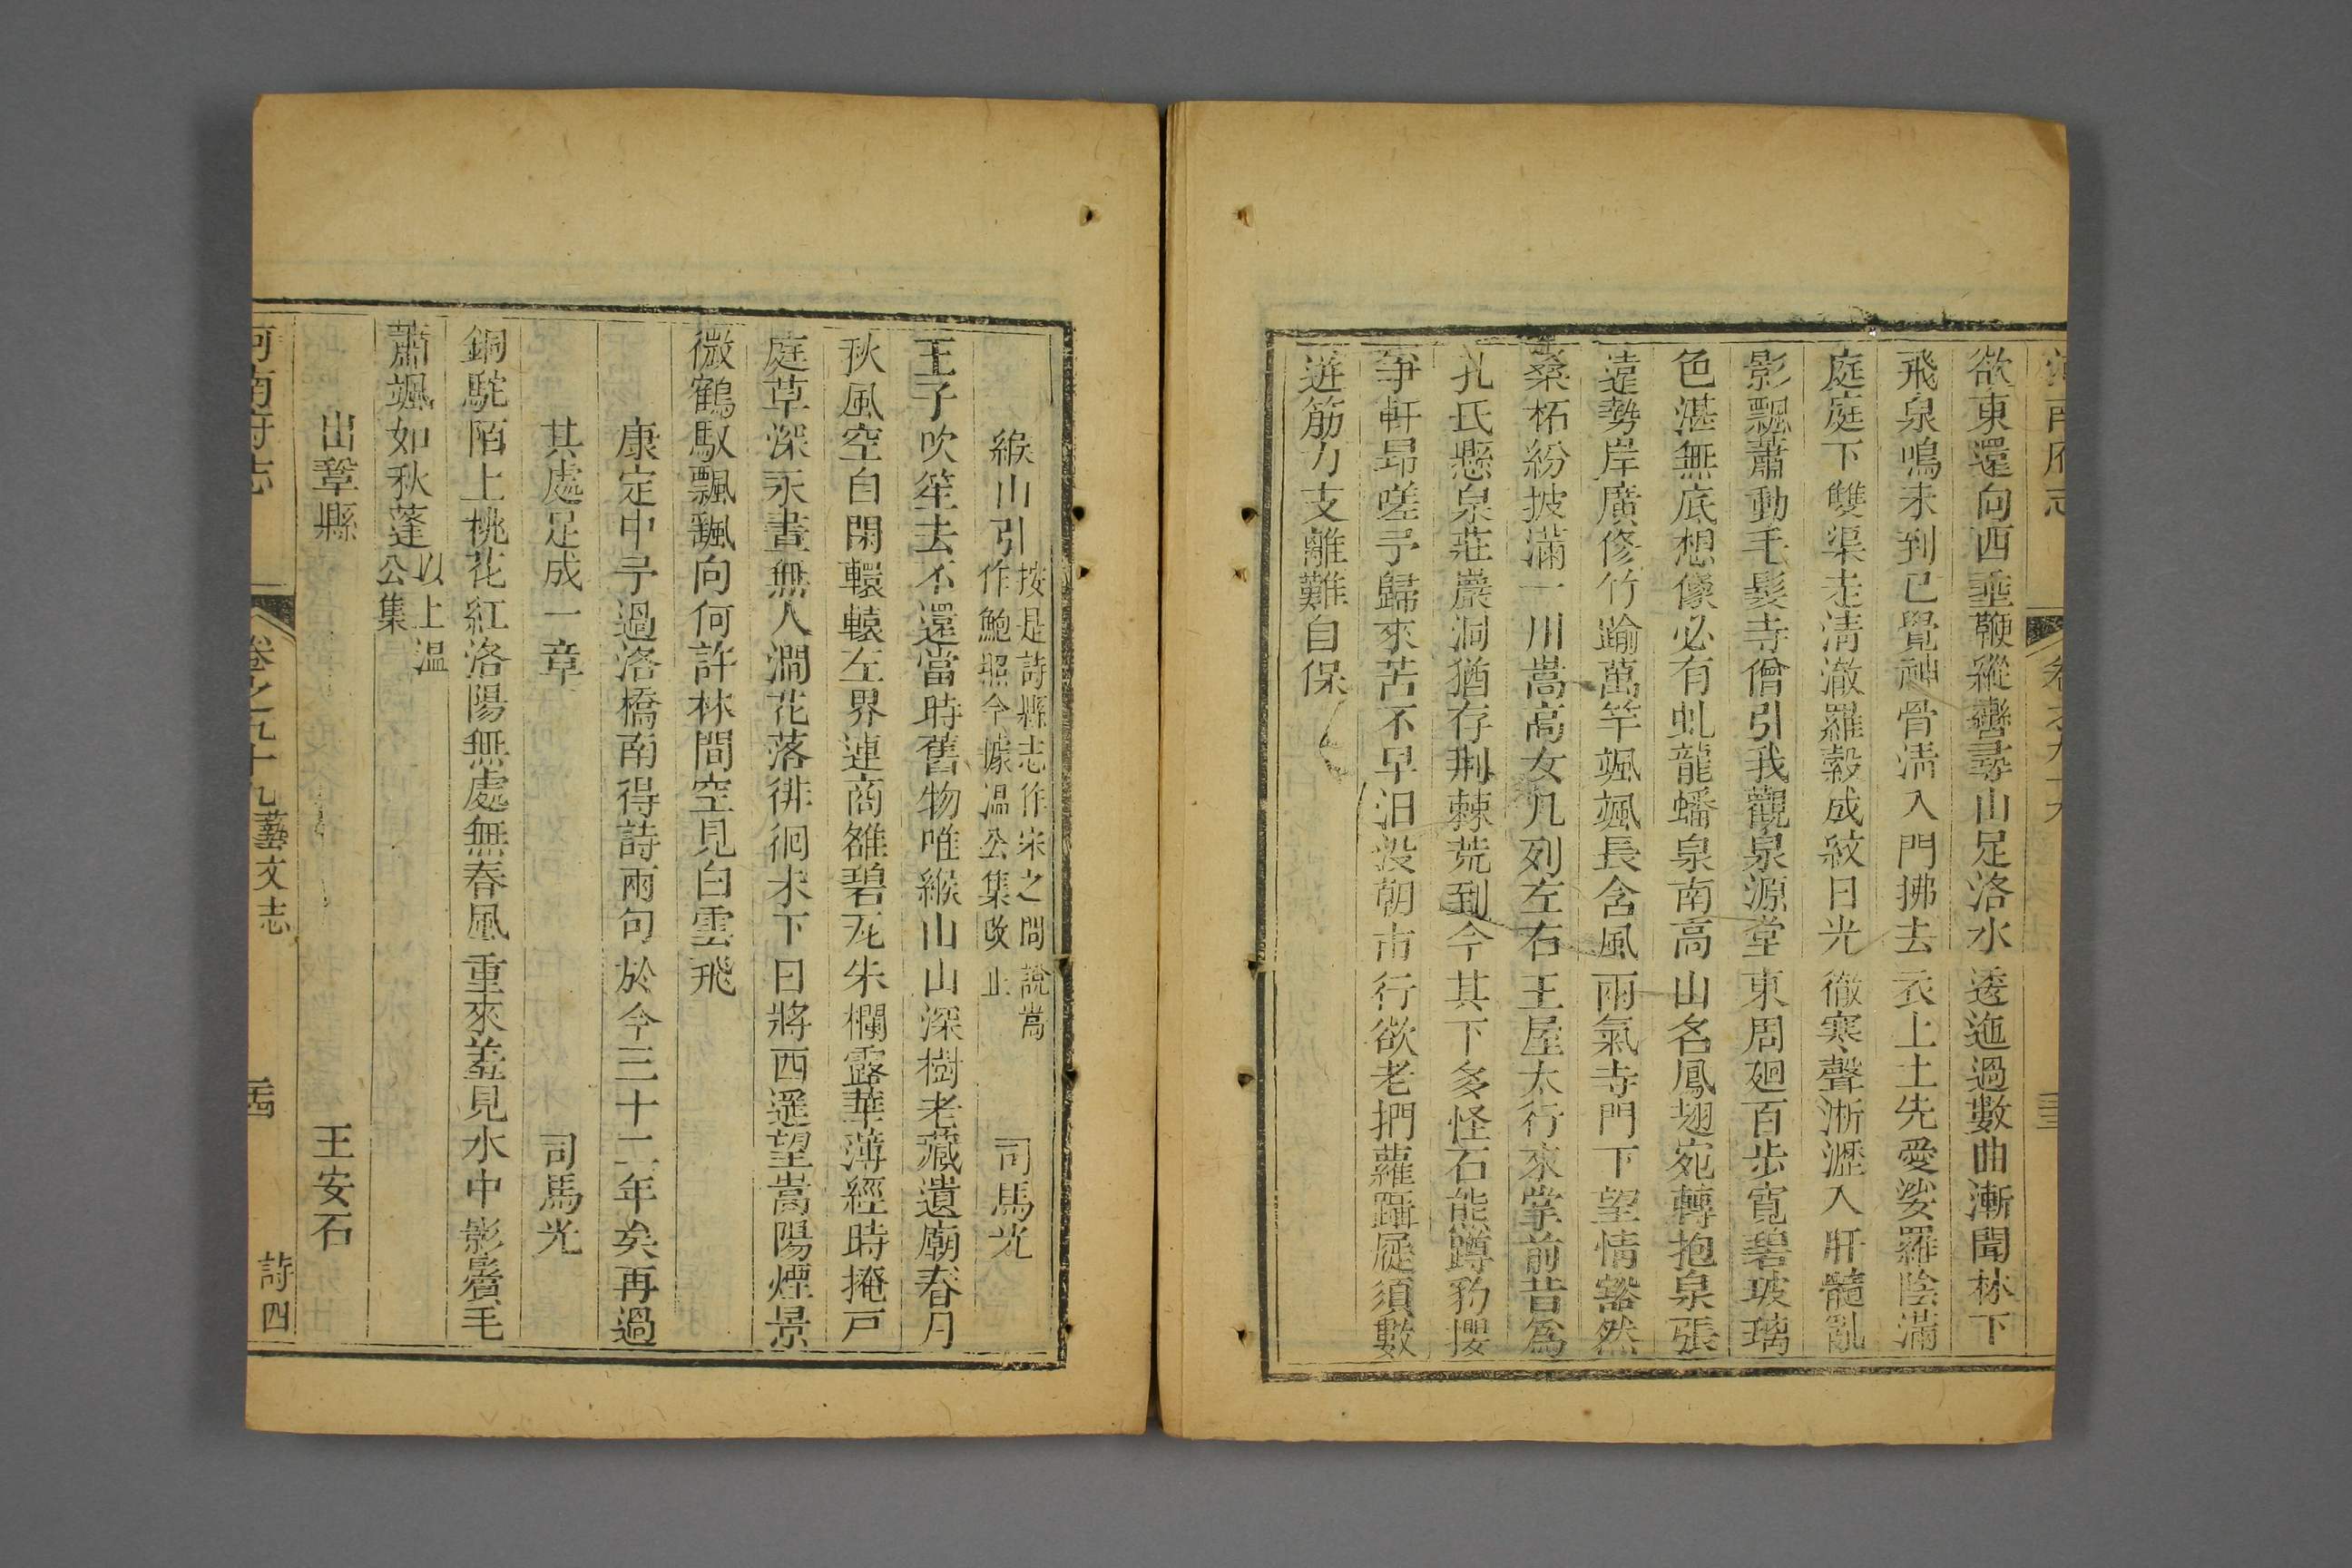 河南府志 卷之九十九
欲東還向西垂鞭縱轡尋山足洛水透迤過數曲漸聞林下
飛泉鳴未到已覺神骨淸入門拂去衣上土先愛娑羅陰滿
庭庭下雙渠走淸澈羅縠成紋日光徹寒聲淅瀝入肝髓亂
影飄蕭動毛髮寺僧引我觀泉源堂東周廻百步寬碧玻璃
色湛無底想像必有虬龍蟠泉南高山名鳳翅宛轉抱泉張
遠勢岸廣修竹踰萬竿颯颯長含風雨氣寺門下望情豁然
桑柘紛披滿一川嵩高女几列左右王屋太行來掌前昔爲
孔氏懸泉莊巖洞猶存荆棘荒到今其下多怪石熊蹲豹攫
爭軒昻嗟予歸來苦不早汩没朝市行欲老捫蘿躡屣須數
遊筋力支離難自保
緱山引 按是詩縣志作宋之問說嵩作鮑照今據温公集改正 司馬光
王子吹笙去不還當時舊物唯緱山山深樹老藏遺廟春月
秋風空自閑轘轅左界連商雒碧瓦朱欄露華薄經時掩戸
庭草深永晝無人澗花落徘徊未下日將西遥望嵩陽煙景
微鶴馭飄飄向何許林間空見白雲飛
康定中予過洛橋南得詩兩句於今三十二年矣再過
其處足成一章 司馬光
銅駝陌上桃花紅洛陽無處無春風重來羞見水中影鬢毛
蕭颯如秋蓬 以上温公集
出鞏縣 王安石
河南府志 卷之九十九 藝文志 詩四